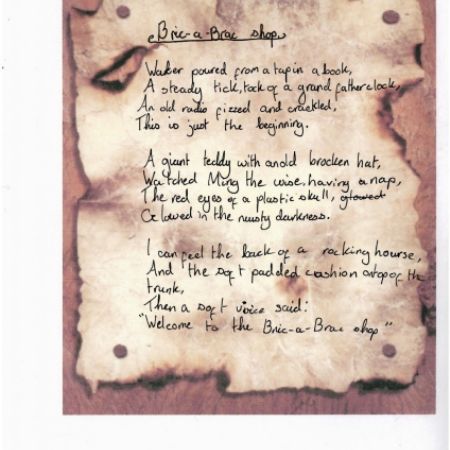 Bric-a-Brac shop
Water poured from a tap in a book,
A steady tick, tock of a grandfather clock,
An old radio fizzed and crackled,
This is just the beginning.
A giant teddy with an old brocken hat,
Watched Ming the wise, having a nap,
The red eyes of a plastic skull, glowed
Glowed in the musty darkness.
I can feel the back of a rocking hourse,
And the soft padded cushion ontop of the
trunk,
Then a soft voice said:
"Welcome to the Bric-a-Brac shop"